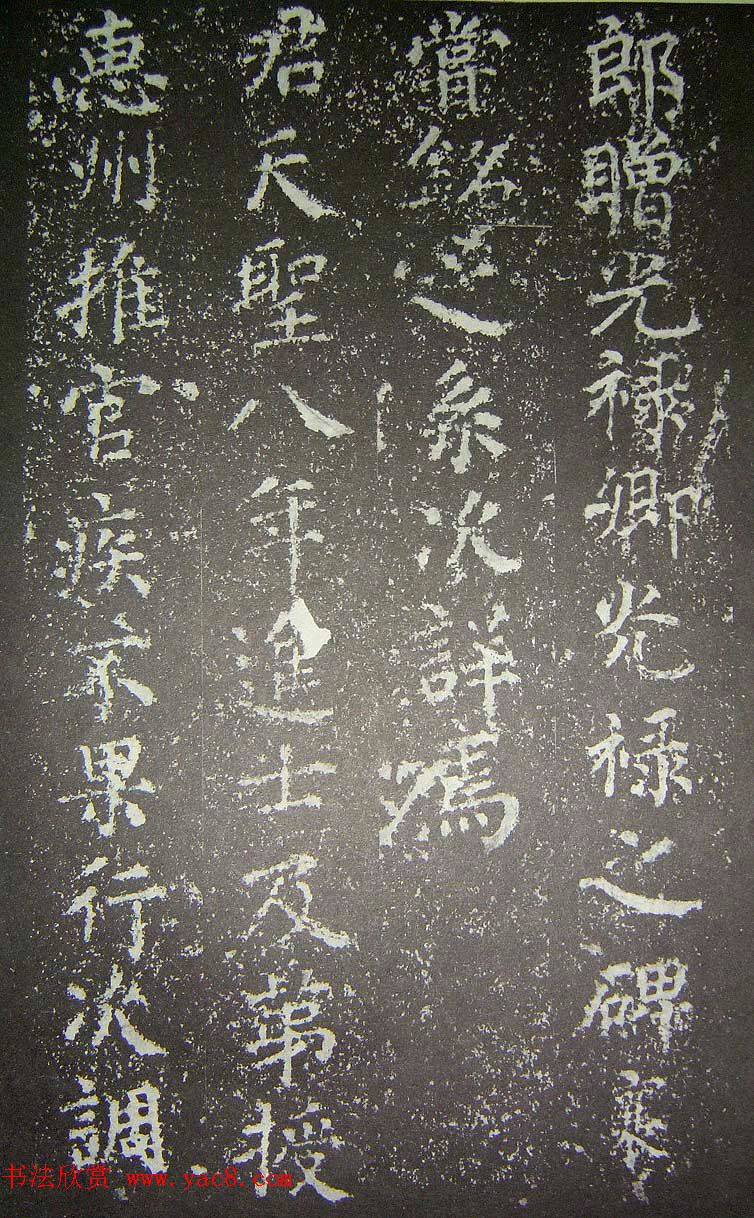 郎贈光禄卿光禄之碑襄
嘗銘之系次詳焉
君天聖八年進士及第授
惠州推官疾不果行次調
书法欣赏 www.yac8.com